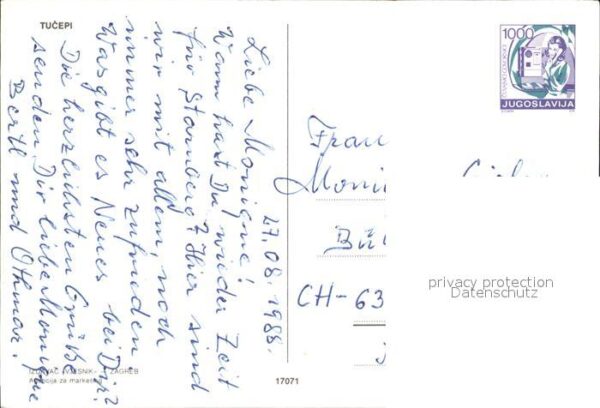 TUČEPI
27.08.1988.
Liebe Monique!
Wann hast Du wieder Zeit
für Starnberg? Hier sind
wir mit allem, noch
immer sehr zufrieden
Was gibt es Neues bei Dir?
Die herzlichsten Grüße
senden Dir liebe Monique
Bertl und Othmar.
IZDAVAČ »VJESNIK« — ZAGREB
Agencija za marketing
17071
1000
JUGOSLAVIJA
Frau
Moni
CH-63
privacy protection
Datenschutz